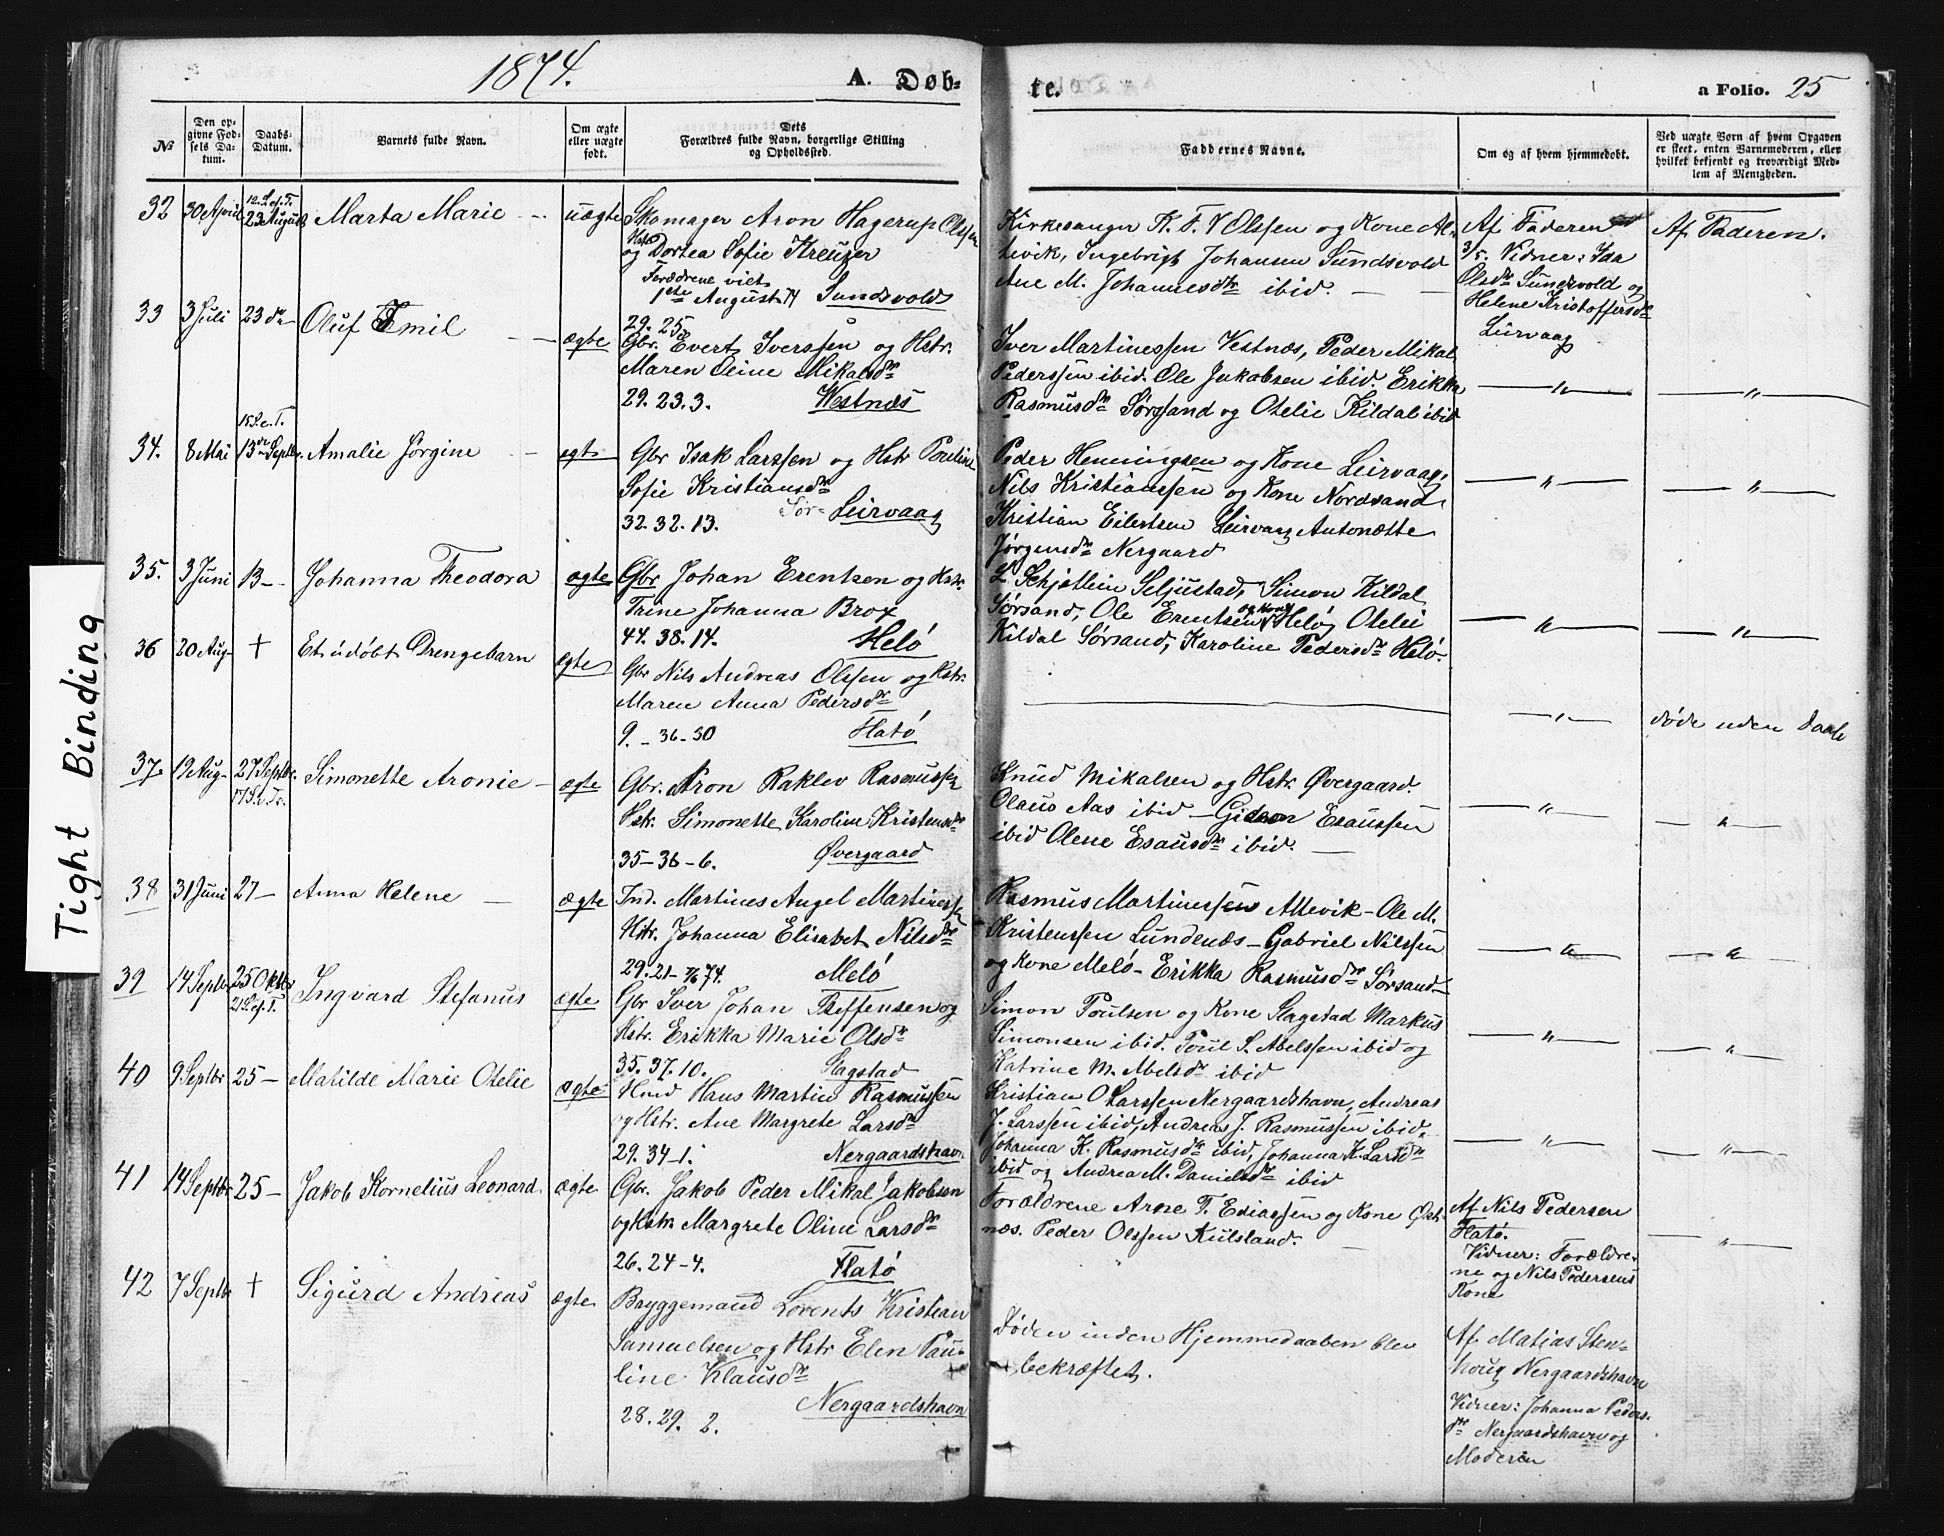 1874.
A. Døb=
te.
a Folio. 25
№
Den op=
givne Fød=
sels Da=
tum.
Daabs=
Datum.
Barnets fulde Navn.
Om ægte
eller uægte
født.
Dets
Forældres fulde Navn, borgerlige Stilling
og Opholdssted.
Faddernes Navne.
Om og af hvem hjemmedøbt.
Ved uægte Børn af hvem Opgaven
er skeet, enten Barnemoderen, eller
hvilket bekjendt og troværdigt Med=
lem af Menigheden.
32 30 April 12. S. ef. T. 23 August Marta Marie uægte
Skomager Aron Hagerup Olssen
og Hstr Dortea Sofie Kreuzer
Forældrene viet
1ste August 74 Sundsvold
29. 25
Kirkesanger K. F. V Olssen og Kone Al-
tevik, Ingebrigt Johansen Sundsvold
Ane M. Johannesdtr ibid.
Af Faderen
3/5. Vidner: Ida
Olsdtr Sundsvold og
Helene Kristoffersdtr
Leirvaag
Af Faderen.
33 3 Juli 23 do Oluf Emil ægte
Gbr. Evert Iverssen og Hstr.
Maren Oline Mikalsdtr
29. 23. 3. Vestnæs
Iver Martinessen Vestnæs, Peder Mikal
Pederssen ibid. Ole Jakobsen ibid. Erikka
Rasmusdtr Sørsand og Otelie Kildal ibid
— " —
— " —
34. 8 Mai 15 S. e. T. 13de Septbr. Amalie Jørgine ægte
Gbr Isak Larssen og Hstr Pouline
Sofie Kristiansdtr
32. 32. 13. Sør- Leirvaag
Peder Henningsen og Kone Leirvaag,
Nils Kristianssen og Kone Nordsand
Kristian Eilertsen Leirvaag Antonætte
Jørgensdtr Nergaard
— " —
— " —
35. 3 Juni 13 — Johanna Theodora ægte
Gbr Johan Erentsen og Hstr.
Trine Johanna Brox
44. 38. 14. Helø
L. Schjøllein Seljustad, Simon Kildal
Sørsand, Ole Erentsen og Kone Helø, Otelie
Kildal Sørsand, Karoline Pedersdtr Helø.
— " —
— " —
36 20 Aug + Et udøbt Drengebarn ægte
Gbr Nils Andreas Olssen og Hstr.
Maren Anna Pedersdtr
9. – 36 – 30 Flatø
— " —
døde uden Daab
37. 19 Aug 27 Septbr. 17 S. e. Tr. Simonette Aronie — ægte
Gbr. Aron Raklev Rasmussen
Hstr. Simonette Karoline Kristensdtr
35 – 36 – 6. Øvergaard
Knud Mikalsen og Hstr Øvergaard
Olaus Aas ibid – Gideon Esaussen
ibid Olene Esausdtr ibid.
— " —
— " —
38 31 Juni 27 — Anna Helene — ægte
Ind. Martines Angel Martinessen
Hstr. Johanna Elisabet Nilsdtr
29. 21 – 74. Melø
Rasmus Martinessen Altevik – Ole M.
Kristenssen Lundenæs – Gabriel Nilssen
og Kone Melø – Erikka Rasmusdtr Sørsand –
— " —
— " —
39 14 Septbr 25 Oktbr 21 S. ef. T. Ingvard Stefanus ægte
Gbr Iver Johan Steffensen og
Hstr. Erikka Marie Olsdtr
35. 37. 10. Slagstad
Simon Poulsen og Kone Slagstad Markus
Simonsen ibid. Poul S. Abelssen ibid og
Katrine M. Abelsdtr ibid
— " —
— " —
40 9 Septbr 25 — Matilde Marie Otelie ægte
Hmd Hans Martin Rasmussen
og Hstr. Ane Margrete Larsdtr
29. 34 – 1. Nergaardshavn
Kristian O Larssen Nergaardshavn, Andreas
J. Larssen ibid, Andreas J. Rasmussen ibid,
Johanna K. Rasmusdtr ibid, Johanna K. Larsdtr
ibid og Andrea M. Danielsdtr ibid
— " —
— " —
41 14 Septbr 25 — Jakob Kornelius Leonard ægte
Gbr. Jakob Peder Mikal Jakobsen
og Hstr Margrete Oline Larsdtr
26. 24 – 4. Flatø
Forældrene Arne T. Ediassen og Kone Øst-
næs. Peder Olssen Kulsland.
Af Nils Pedersen
Flatø.
Vidner: Forældre-
ne og Nils Pedersens
Kone
— " —
42 7 Septbr + Sigurd Andreas ægte
Bryggemand Lorents Kristian
Samuelsen og Hstr Elen Pau-
line Klausdtr
28. 29. 2. Nergaardshavn
Døden inden Hjemmedaaben blev
bekræftet.
Af Matias Sten-
houg Nergaardshavn
Vidner: Johanna Peders-
dtr Nergaardshavn og
Moderen
Tight Binding